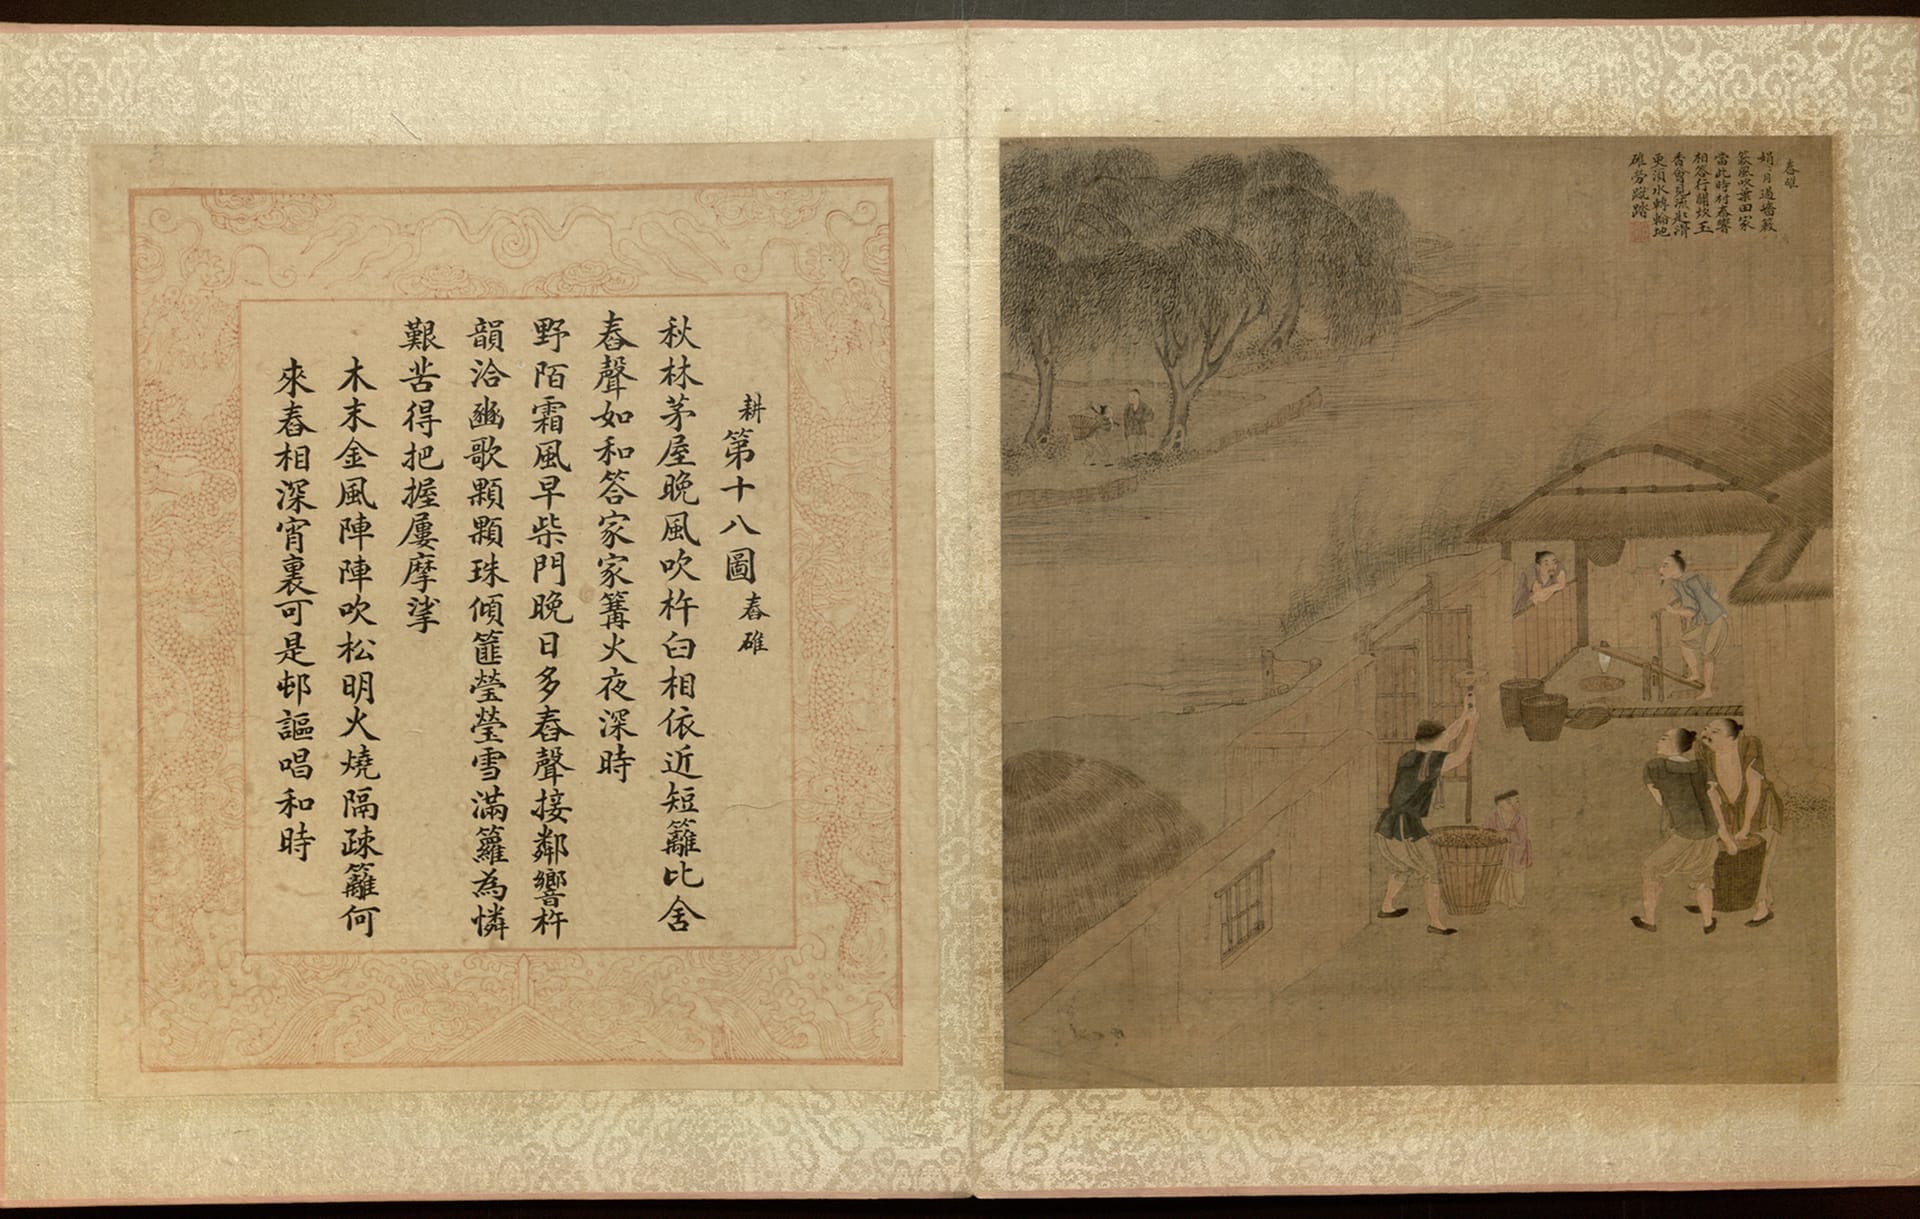 舂碓
娟〻月過墻簌
簌風吹葉田家
當此時村舂響
相答行聞炊玉
香會見流匙滑
更須水轉輪地
碓勞蹴踏
耕第十八圖舂碓
秋林茅屋晚風吹杵臼相依近短籬比舍
舂聲如和答家家篝火夜深時
野陌霜風早柴門晚日多舂聲接鄰響杵
韻洽豳歌顆顆珠傾篚瑩瑩雪滿籮為憐
艱苦得把握屢摩挲
木末金風陣陣吹松明火燒隔疎籬何
來舂相深宵裏可是邨謳唱和時